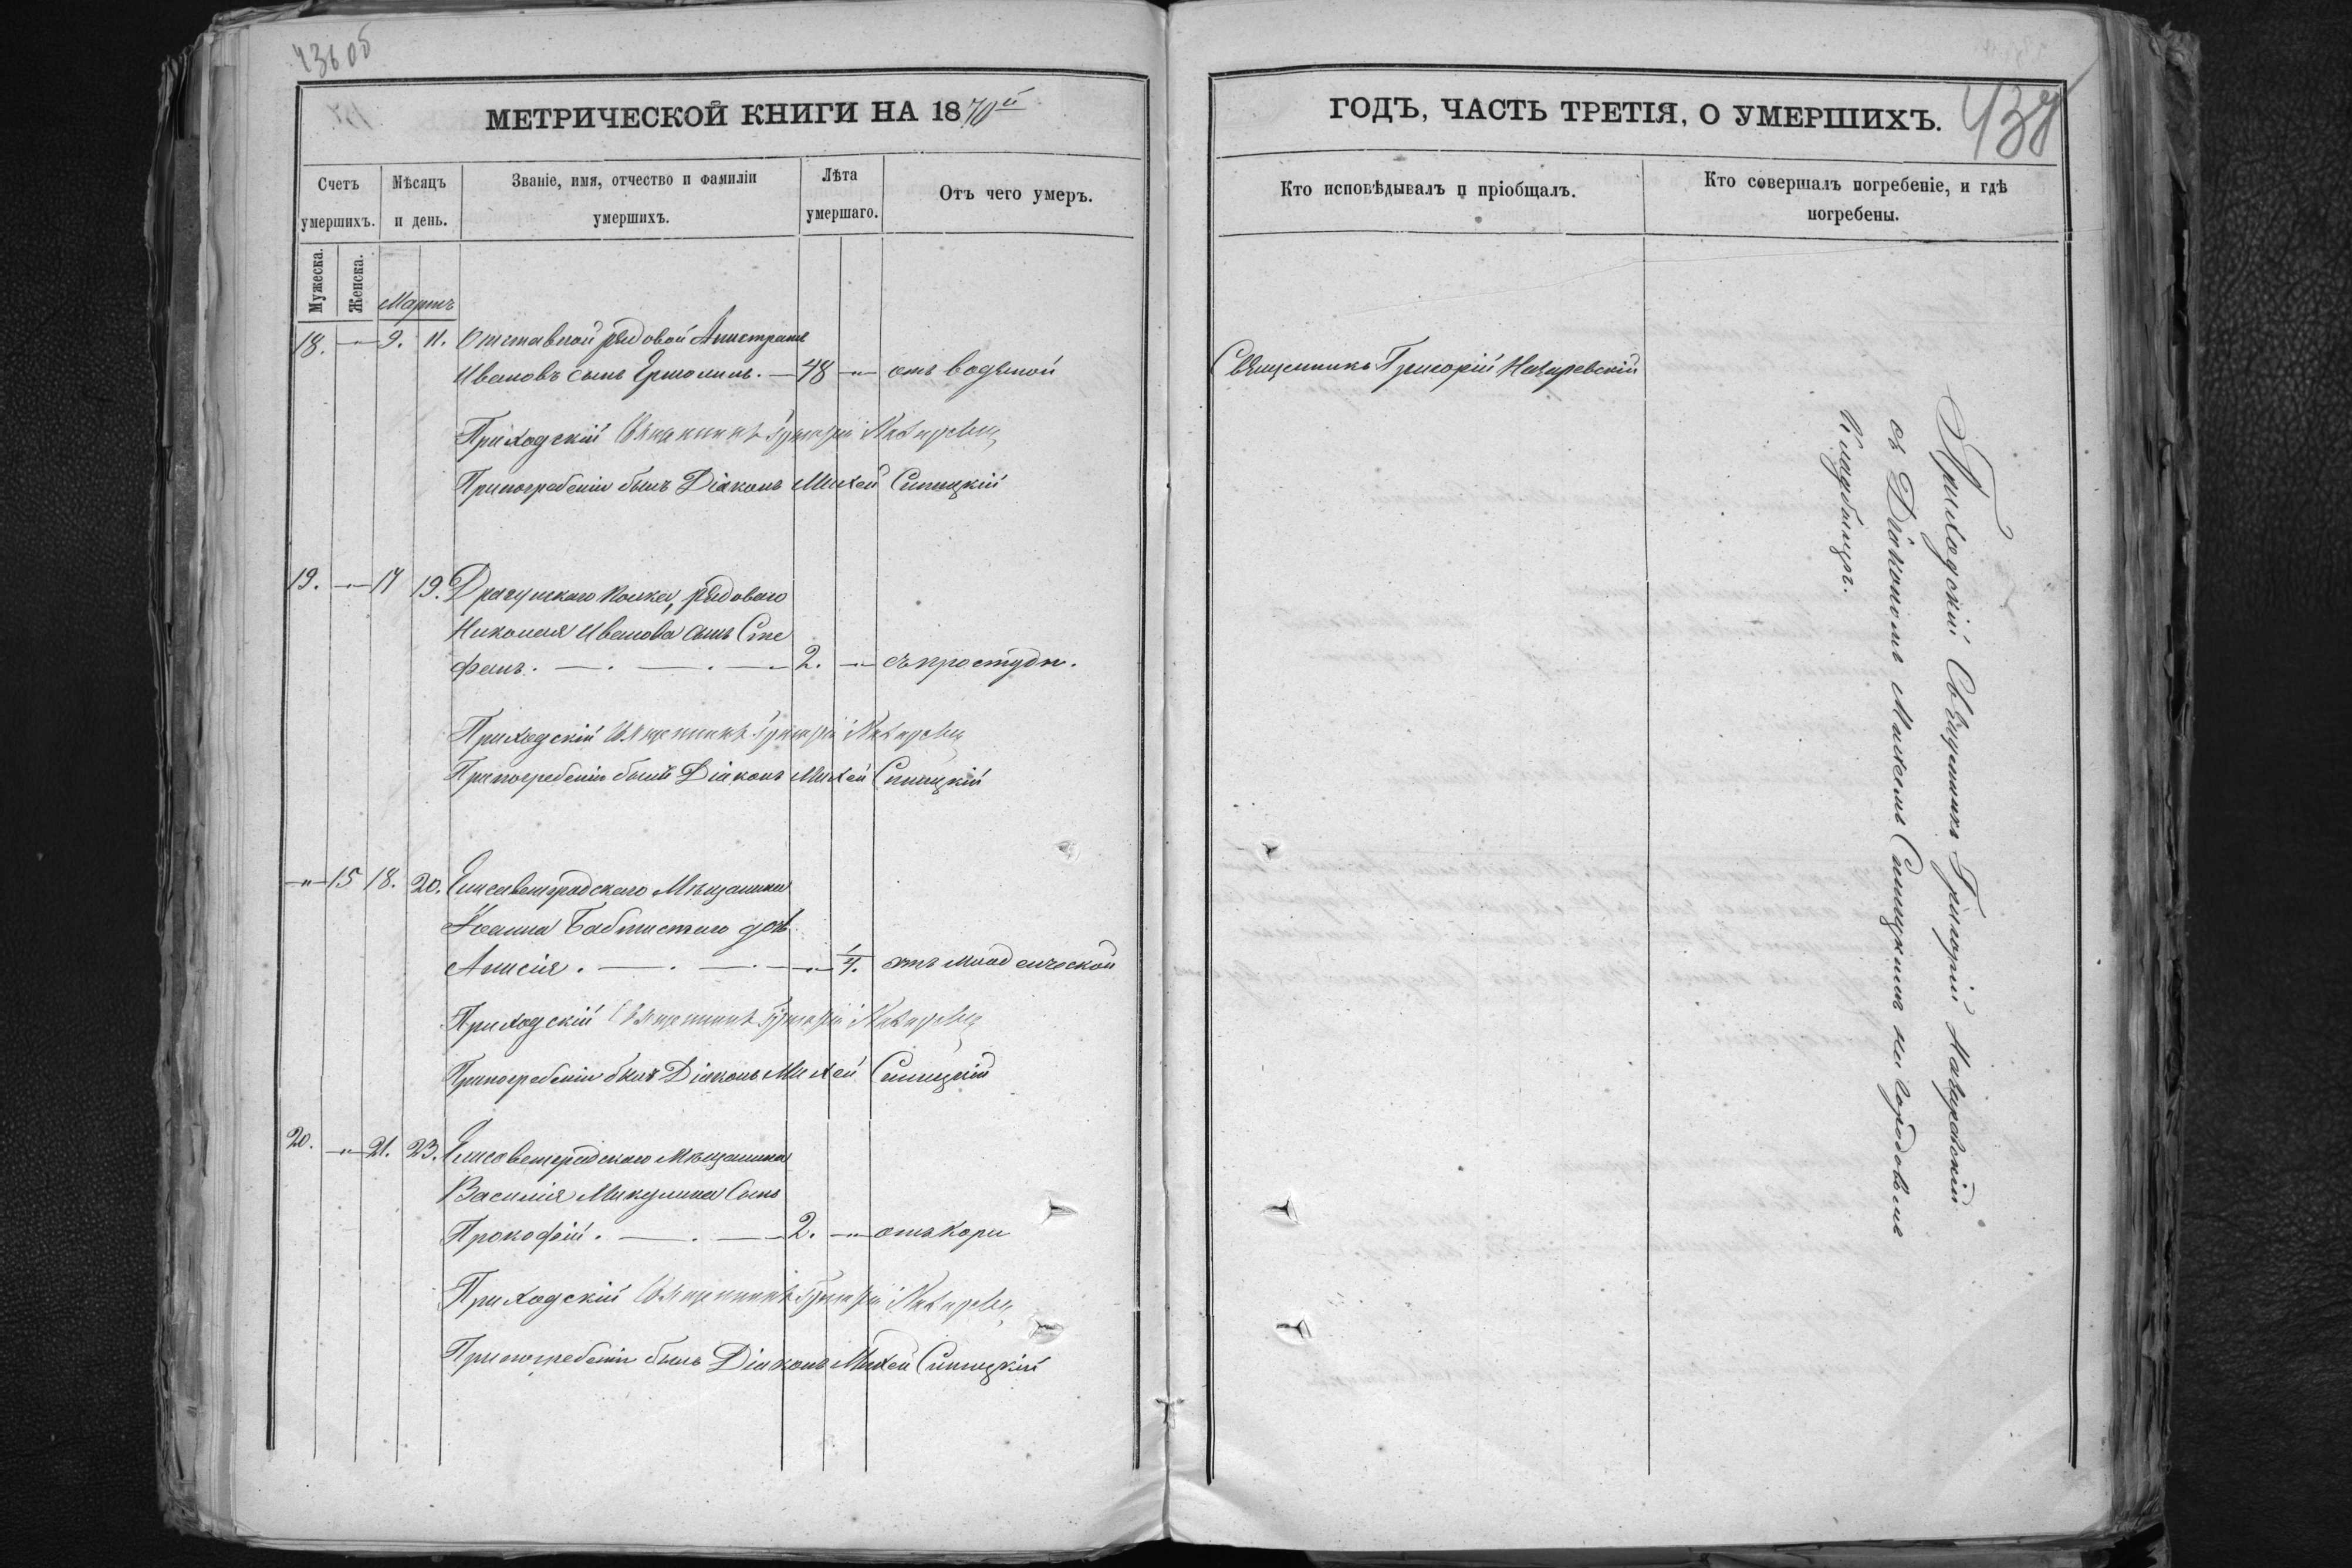 436 об
МЕТРИЧЕСКОЙ КНИГИ НА 1870й
Счетъ умершихъ.
Мѣсяцъ и день.
Званіе, имя, отчество и фамиліи умершихъ.
Лѣта умершаго.
Отъ чего умеръ.
Мужеска.
Женска.
Мартъ
18. — " — 9. 11. Отставной рядовой
Ивановъ сынъ — 48 — " — отъ водяной
Приходскій Священникъ Григорій Назаревскій
При погребеніи былъ Діаконъ Михей Синицкій
19. — " — 17 19. Драгунскаго полка, рядоваго
Николая Иванова сынъ Сте
фанъ. — . — . — 2. — " — съ простуды.
Приходскій Священникъ Григорій Назаревскій
При погребеніи былъ Діаконъ Михей Синицкій
— " — 15 18. 20. Елисаветградскаго Мѣщанина
Іоанна дочь
Анисія. — . — . — " — 1/4. отъ младенческой
Приходскій Священникъ Григорій Назаревскій
При погребеніи былъ Діаконъ Михей Синицкій
20. — " — 21. 23. Елисаветградскаго Мѣщанина
Василія Микулина Сынъ
Прокофій. — . — 2. — " — отъ кори
Приходскій Священникъ Григорій Назаревскій
При погребеніи былъ Діаконъ Михей Синицкій
ГОДЪ, ЧАСТЬ ТРЕТІЯ, О УМЕРШИХЪ.
437
Кто исповѣдывалъ и пріобщалъ.
Кто совершалъ погребеніе, и гдѣ погребены.
Священникъ Григорій Назаревскій
Приходскій Священникъ Григорій Назаревскій
съ Діакономъ Михеемъ Синицкимъ на городовомъ
Кладбищѣ.